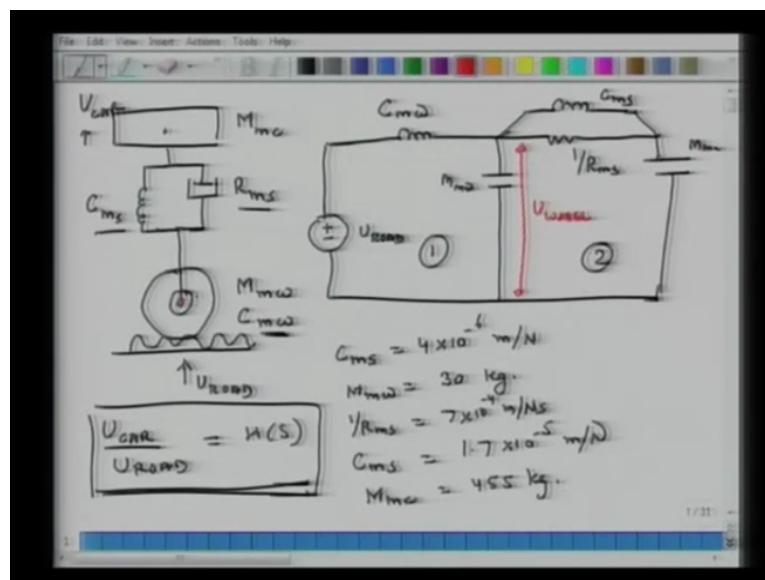 File Edit View Insert Actions Tools Help
U_CAR
M_mc
C_ms
R_ms
M_mw
C_mw
U_ROAD
U_CAR / U_ROAD = H(S)
C_mw
C_ms
1/R_ms
M_mw
U_ROAD
1
2
C_ms = 4×10^-6 m/N
M_mw = 30 kg.
1/R_ms = 7×10^-4 m/Ns
C_ms = 1.7×10^-5 m/N
M_mc = 455 kg.
1/31